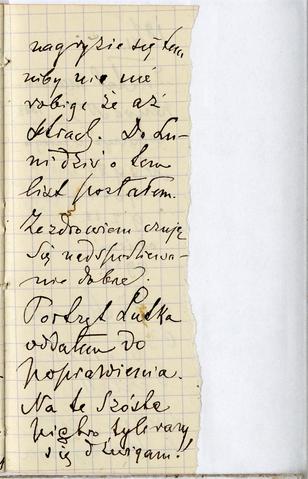 nagryzie się tem
niby nic nie
robiąc że aż
strach. Do Lu-
ni dziś o tem
list posłałem.
Ze zdrowiem czuję
się nadspodziewa-
nie dobrze.
Portret Ludka
oddałem do
poprawienia.
Na te szóste
piętro tyle razy
się dźwigam!